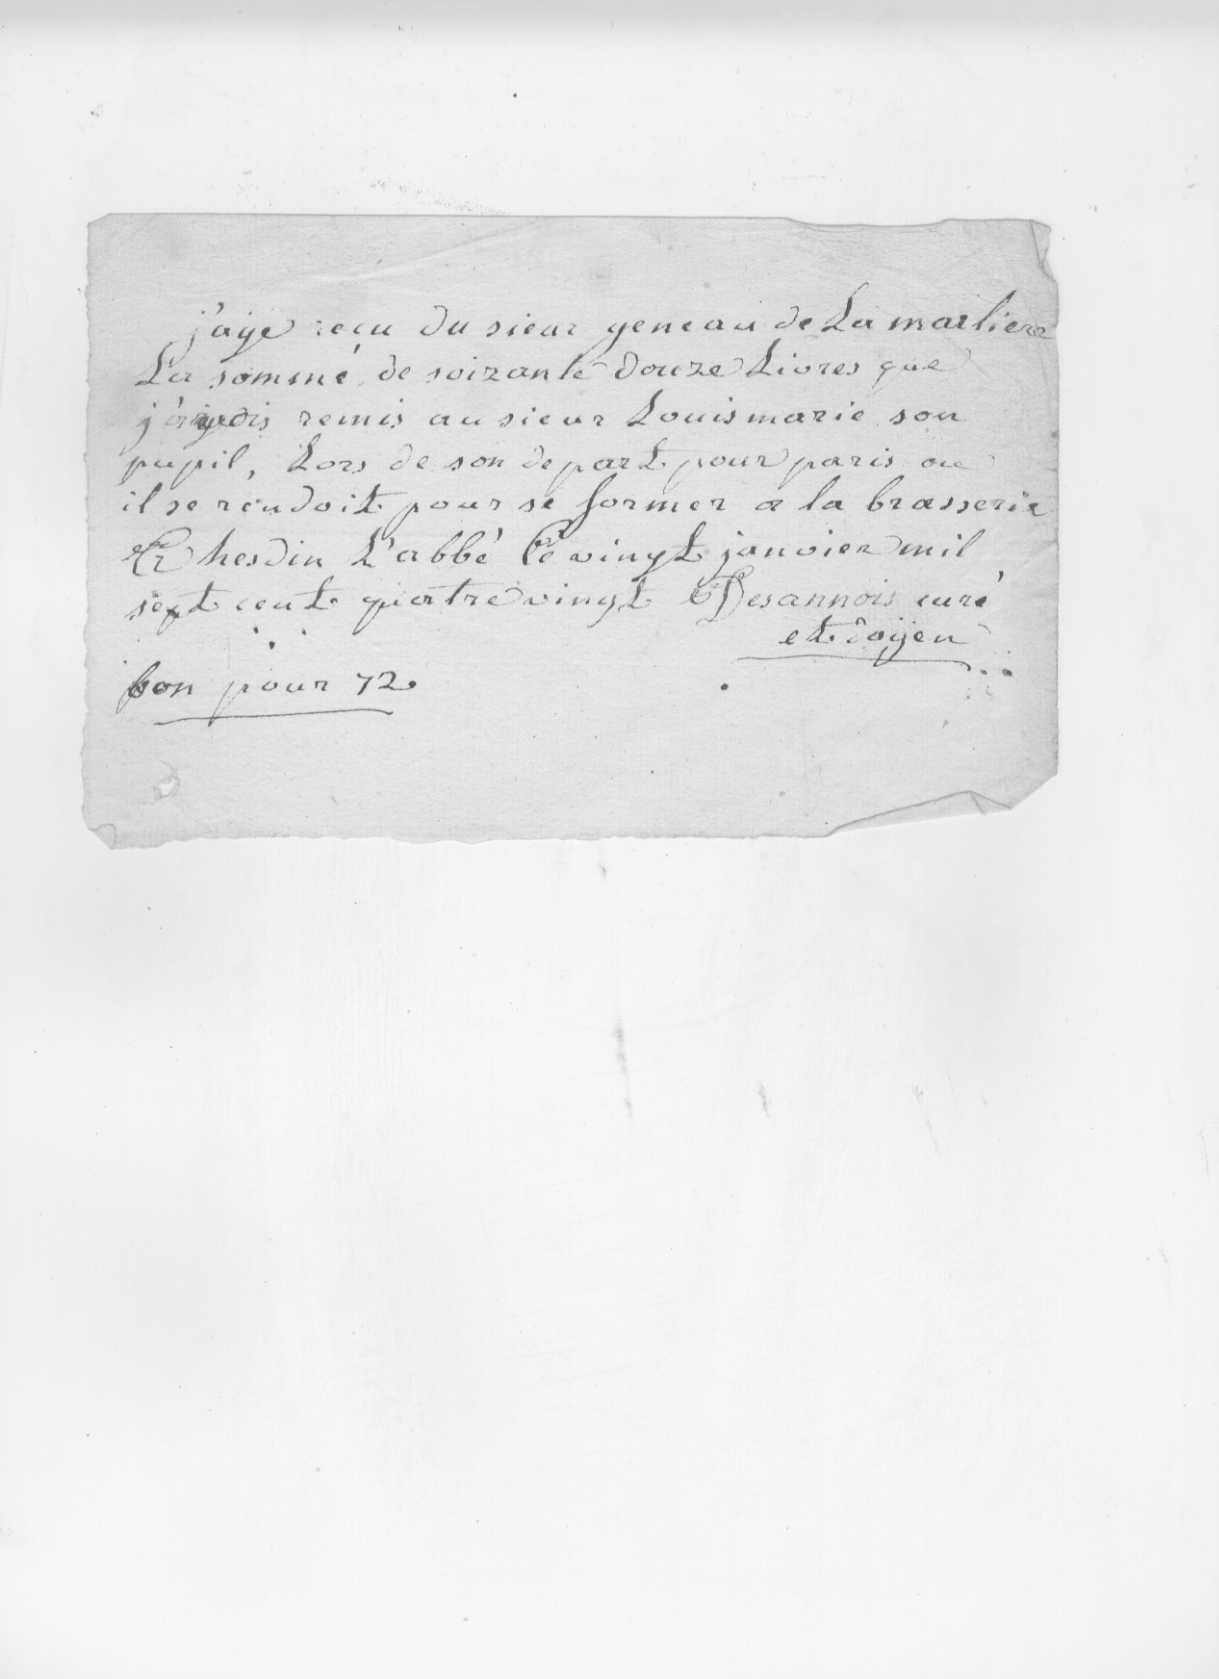 j'aye reçu du sieur geneau de La marliere
La sommé de soixante douze Livres que
j'avois remis au sieur Louis marie son
pupil, Lors de son depart pour paris ou
il se rendoit pour se former a la brasserie
hesdin L'abbé Cé vingt janvier mil
sept cent quatre vingt Desannois curé
et doÿen
bon pour 72